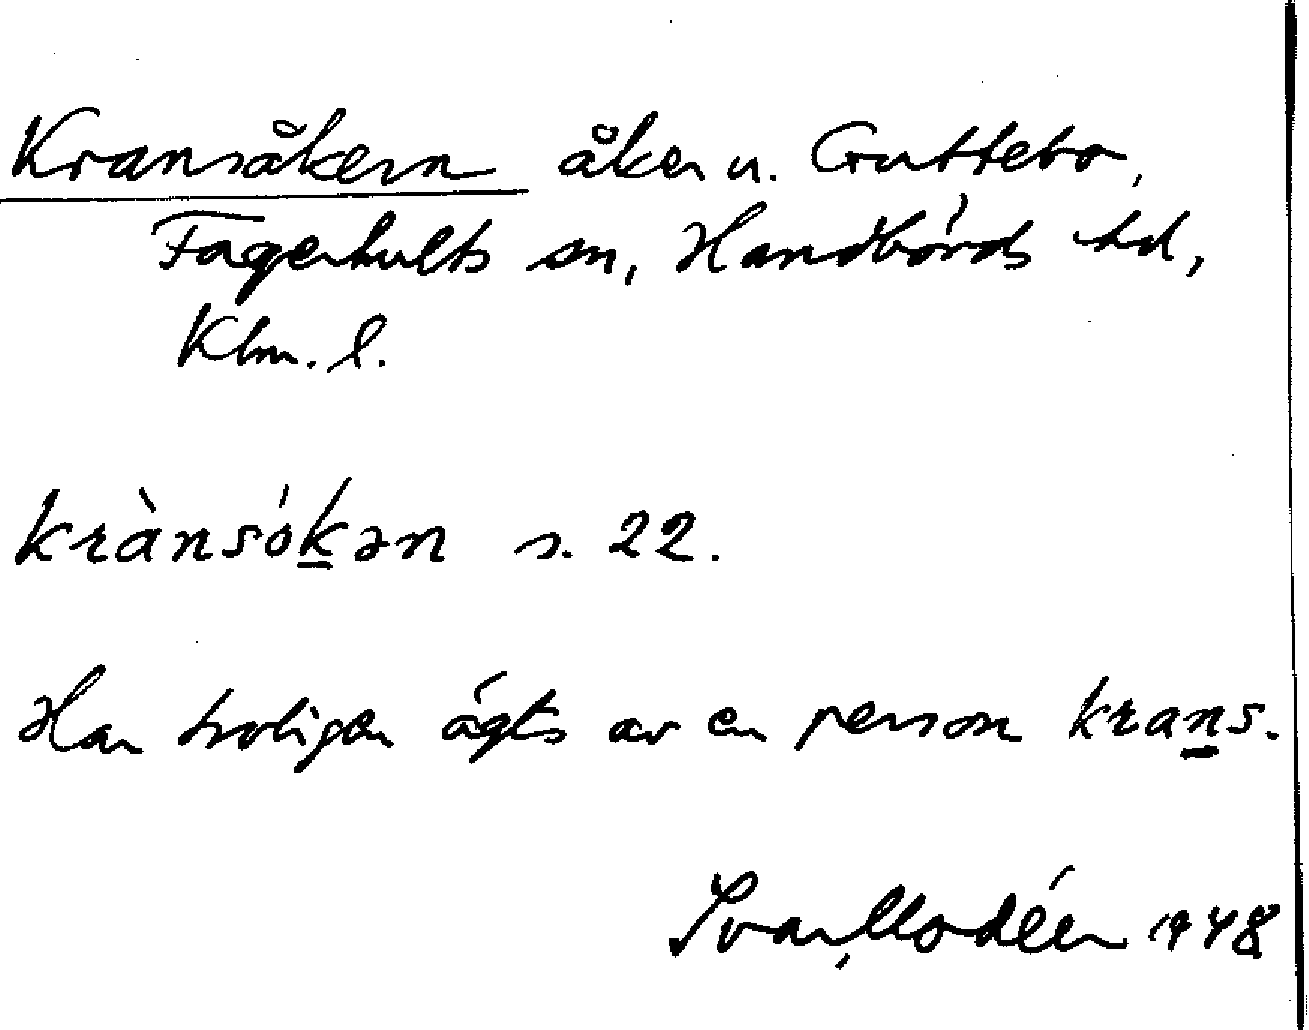 Kransåkern åker u. Guttebo,
Fagerhults sn, Handbörds hd,
Klm. l.
krànsókən s. 22.
Har troligen ägts av en person krans.
Ivar Modéer 1948